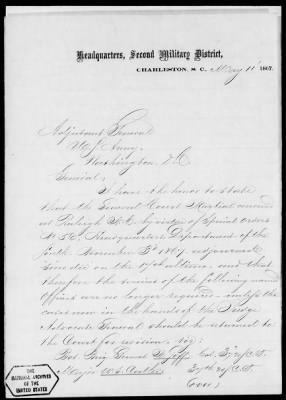 Headquarters, Second Military District,
CHARLESTON, S. C., May 11 1867.
Adjutant General
U.S. Army
Washington, D.C.
General,
I have the honor to state
that the General Court Martial convened
at Raleigh N.C. by virtue of Special Orders
No 50, Headquarters Department of the
South November 3d 1867, adjourned
sine die on the 17th ultimo and that
therefore the services of the following named
Officers are no longer required unless the
cases now in the hands of the Judge
Advocate General should be returned to
the Court for revision. viz:
Bvt Brig General Col.
Major 37th
(Over)
THE
NATIONAL ARCHIVES
OF THE
UNITED STATES